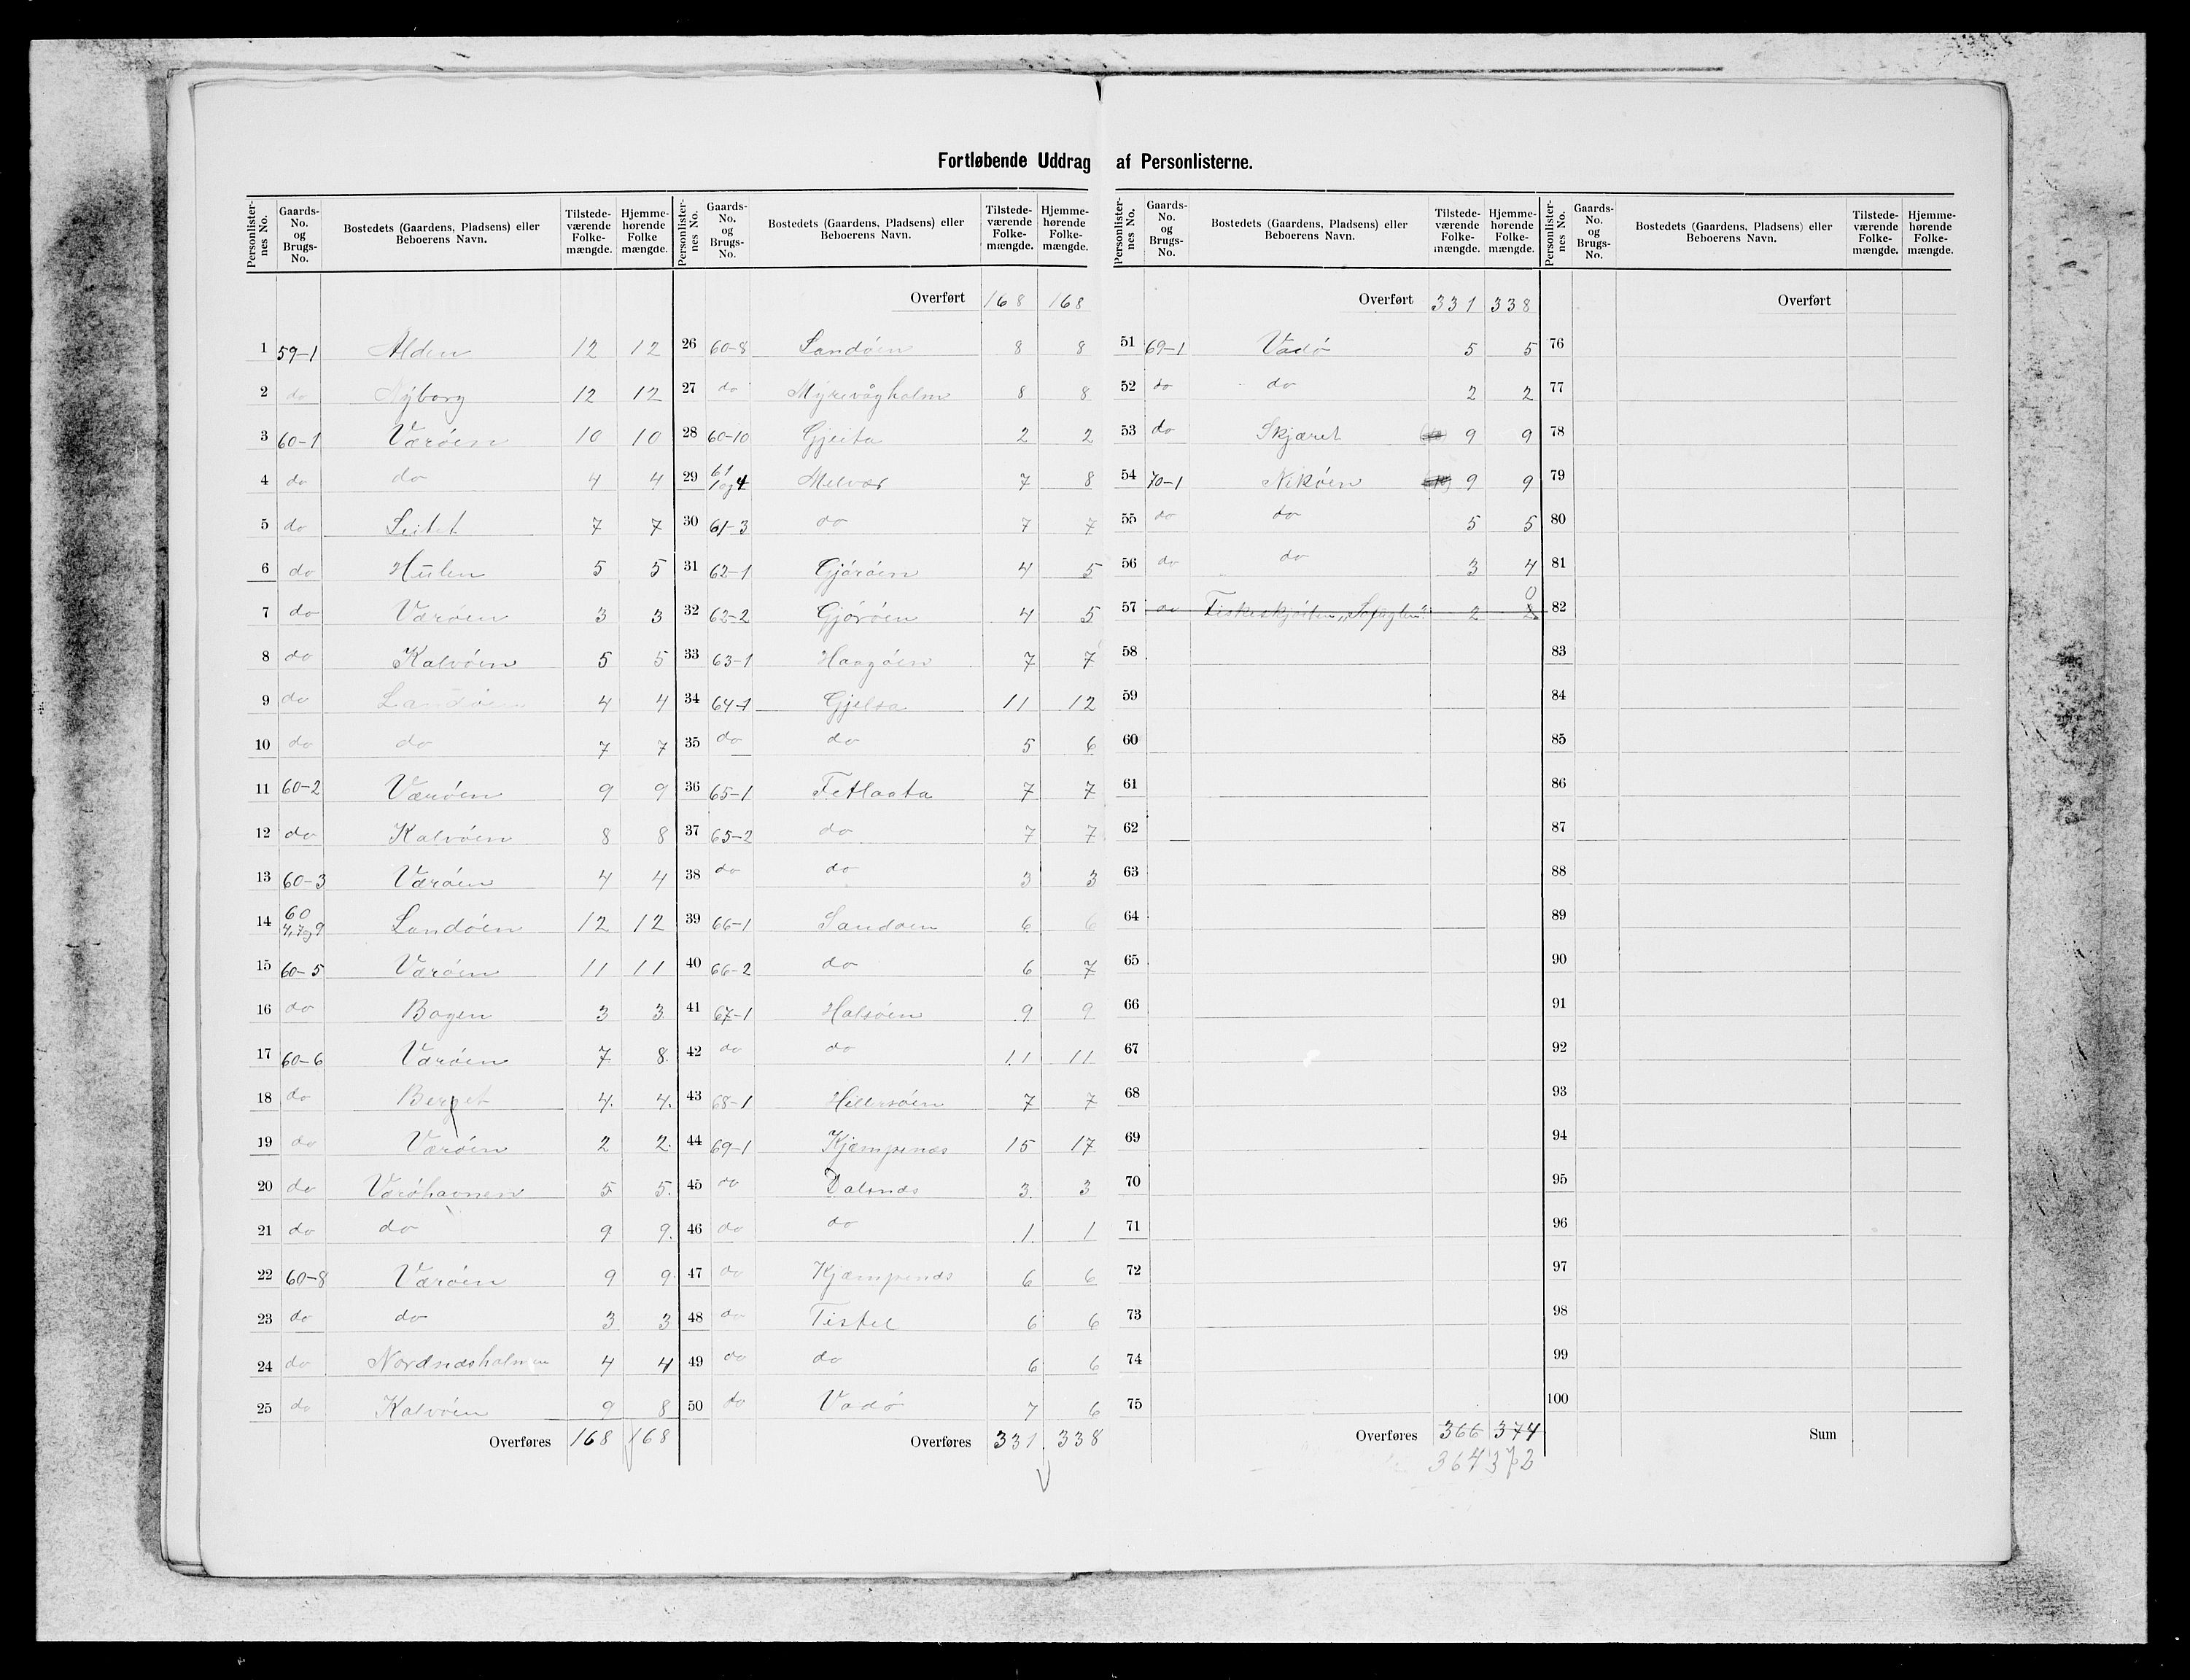 Fortløbende Uddrag af Personlisterne.
Personlister-nes No. | Gaards-No. og Brugs-No. | Bostedets (Gaardens, Pladsens) eller Beboerens Navn. | Tilstede-værende Folke-mængde. | Hjemme-hørende Folke mængde.
1 59-1 Alden 12 12
2 do Nyborg 12 12
3 60-1 Værøen 10 10
4 do do 4 4
5 do Leitet 7 7
6 do Hulen 5 5
7 do Værøen 3 3
8 do Kalvøen 5 5
9 do Landøen 4 4
10 do do 7 7
11 60-2 Værøen 9 9
12 do Kalvøen 8 8
13 60-3 Værøen 4 4
14 60 4,7og9 Landøen 12 12
15 60-5 Værøen 11 11
16 do Bogen 3 3
17 60-6 Værøen 7 8
18 do Berget 4. 4.
19 do Værøen 2 2.
20 do Værøhavnen 5 5.
21 do do 9 9.
22 60-8 Værøen 9 9
23 do do 3 3
24 do Nordnæsholmen 4 4
25 do Kalvøen 9 8
Overføres 168 168
Personlister-nes No. | Gaards-No. og Brugs-No. | Bostedets (Gaardens, Pladsens) eller Beboerens Navn. | Tilstede-værende Folke-mængde. | Hjemme-hørende Folke-mængde.
Overført 168 168
26 60-8 Landøen 8 8
27 do Myrevågholm 8 8
28 60-10 Gjeita 2 2
29 61 1og4 Melvær 7 8
30 61-3 do 7 7
31 62-1 Gjørøen 4 5
32 62-2 Gjørøen 4 5
33 63-1 Haagøen 7 7
34 64-1 Gjelsa 11 12
35 do do 5 6
36 65-1 Tetlaata 7 7
37 65-2 do 7 7
38 do do 3 3
39 66-1 Sandøen 6 6
40 66-2 do 6 7
41 67-1 Halsøen 9 9
42 do do 11 11
43 68-1 Hillersøen 7 7
44 69-1 Kjæmpenæs 15 17
45 do Dalsnæs 3 3
46 do do 1 1
47 do Kjæmpenæs 6 6
48 do Tistel 6 6
49 do do 6 6
50 do Vadø 7 6
Overføres 331 338
Personlister-nes No. | Gaards-No. og Brugs-No. | Bostedets (Gaardens, Pladsens) eller Beboerens Navn. | Tilstede-værende Folke-mængde. | Hjemme-hørende Folke-mængde.
Overført 331 338
51 69-1 Vadø 5 5
52 do do 2 2
53 do Skjæret 9 9
54 70-1 Nikøen 9 9
55 do do 5 5
56 do do 3 4
57 do Fiskeskjøiten 2 0
58
59
60
61
62
63
64
65
66
67
68
69
70
71
72
73
74
75
Overføres 366 374
364 372
Personlister-nes No. | Gaards-No. og Brugs-No. | Bostedets (Gaardens, Pladsens) eller Beboerens Navn. | Tilstede-værende Folke-mængde. | Hjemme-hørende Folke-mængde.
Overført
76
77
78
79
80
81
82
83
84
85
86
87
88
89
90
91
92
93
94
95
96
97
98
99
100
Sum